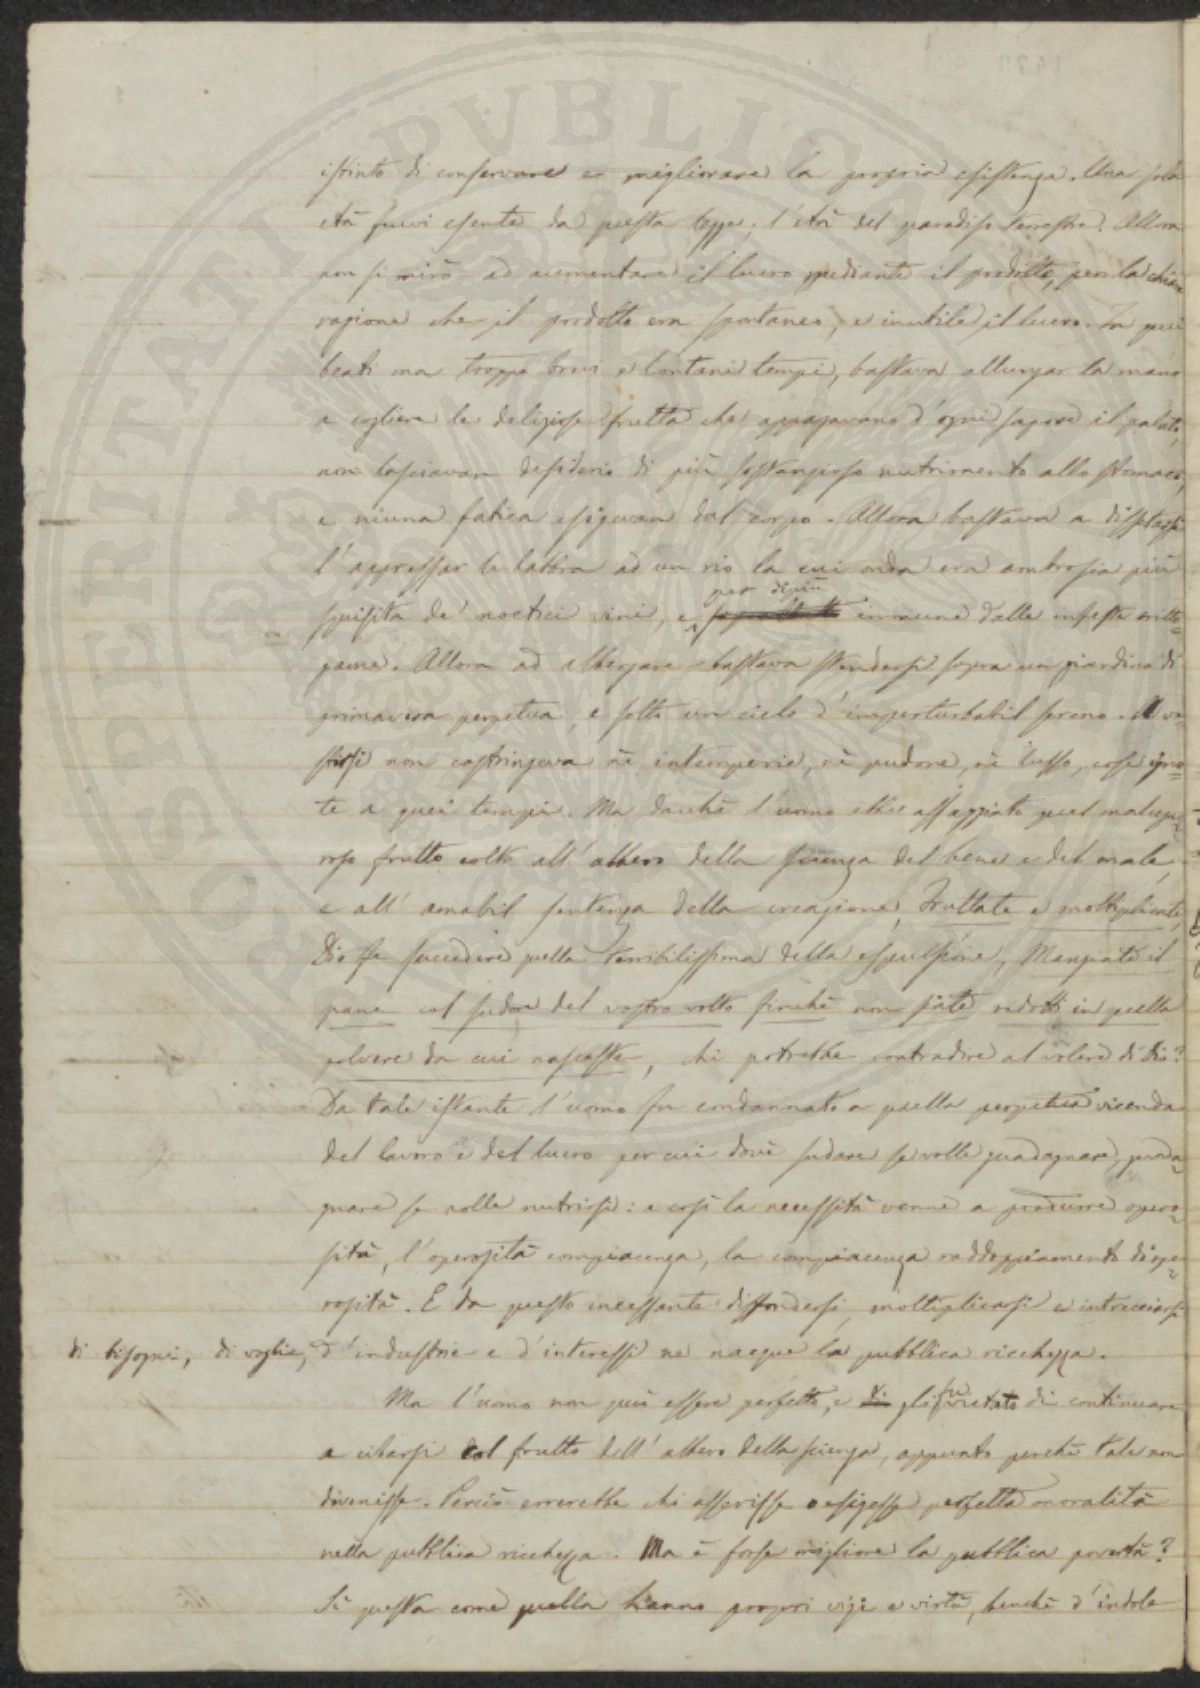 PROSPERITATI PVBLICAE
istinto di conservare e migliorare la propria esistenza. Una sola
età fuvvi esente da questa legge; l'età del paradiso terrestre. Allora
non si mirò ad aumentare il lucro mediante il prodotto, per la chiara
ragione che il prodotto era spontaneo, e inutile il lucro. In quei
beati ma troppo brevi e lontani tempi, bastava allungar la mano
a cogliere le deliziose frutta che appagavano d'ogni sapore il palato,
non lasciavan desiderio di più sostanzioso nutrimento allo stomaco,
e niuna fatica esigevan dal corpo. Allora bastava a dissetarsi
l'appressar le labbra ad un rio la cui onda era ambrosia più
squisita de' noetici vini, e per dipiù immune dalle infeste critto-
game. Allora ad albergare bastava stendersi sopra un giardino di
primavera perpetua, e sotto un cielo d'imperturbabil sereno. A ve-
stirsi non costringeva nè intemperie, nè pudore, nè lusso, cose igno-
te a quei tempi. Ma dacchè l'uomo ebbe assaggiato quel malaugu-
roso frutto colto all'albero della scienza del bene e del male,
e all'amabil sentenza della creazione, Fruttate e moltiplicate,
Dio fe succedere quella terribilissima della espulsione, Mangiate il
pane col sudor del vostro volto finchè non siate ridotti in quella
polvere da cui nasceste, chi potrebbe contradire al volere di Dio?
Da tale istante l'uomo fu condannato a quella perpetua vicenda
del lavoro e del lucro per cui dovè sudare se volle guadagnare, guada-
gnare se volle nutrirsi: e così la necessità venne a produrre opero-
sità, l'operosità compiacenza, la compiacenza raddoppiamento di ope-
rosità. E da questo incessante diffondersi, moltiplicarsi e intrecciarsi
di bisogni, di voglie, d'industrie e d'interessi ne nacque la pubblica ricchezza.
Ma l'uomo non può essere perfetto, e di gli fu vietato di continuare
a cibarsi del frutto dell'albero della scienza, appunto perchè tale non
divenisse. Perciò errerebbe chi asserisse o esigesse perfetta moralità
nella pubblica ricchezza. Ma è forse migliore la pubblica povertà?
Sì questa come quella hanno proprj vizj e virtù, benchè d'indole